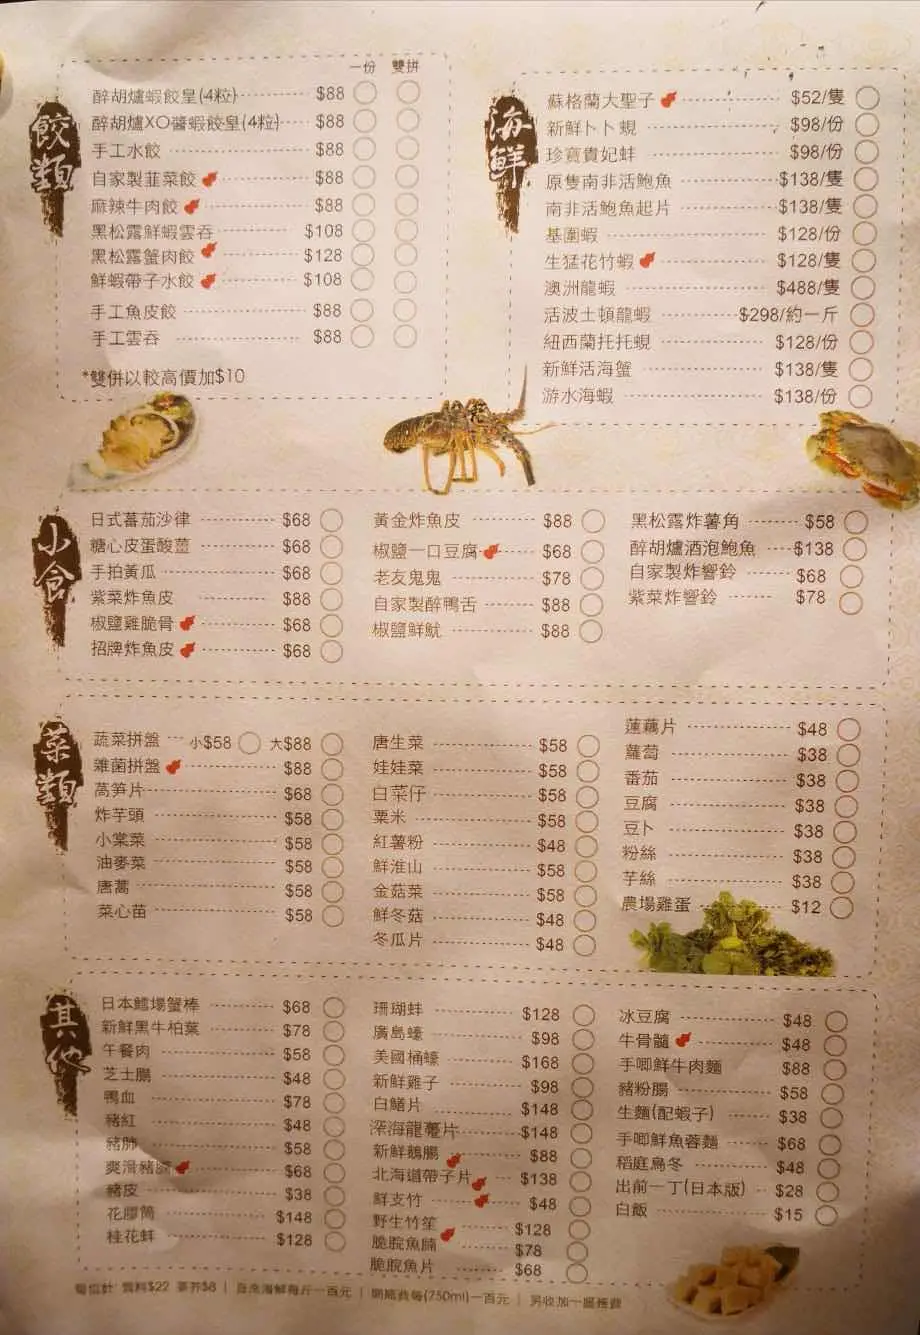 餃類
一份 雙拼
醉胡爐蝦餃皇(4粒) $88
醉胡爐XO醬蝦餃皇(4粒) $88
手工水餃 $88
自家製韮菜餃 $88
麻辣牛肉餃 $88
黑松露鮮蝦雲吞 $108
黑松露蟹肉餃 $128
鮮蝦帶子水餃 $108
手工魚皮餃 $88
手工雲吞 $88
*雙併以較高價加$10
海鮮
蘇格蘭大聖子 $52/隻
新鮮卜卜蜆 $98/份
珍寶貴妃蚌 $98/份
原隻南非活鮑魚 $138/隻
南非活鮑魚起片 $138/隻
基圍蝦 $128/份
生猛花竹蝦 $128/隻
澳洲龍蝦 $488/隻
活波士頓龍蝦 $298/約一斤
紐西蘭托托蜆 $128/份
新鮮活海蟹 $138/隻
游水海蝦 $138/份
小食
日式蕃茄沙律 $68
糖心皮蛋酸薑 $68
手拍黃瓜 $68
紫菜炸魚皮 $88
椒鹽雞脆骨 $68
招牌炸魚皮 $68
黃金炸魚皮 $88
椒鹽一口豆腐 $68
老友鬼鬼 $78
自家製醉鴨舌 $88
椒鹽鮮魷 $88
黑松露炸薯角 $58
醉胡爐酒泡鮑魚 $138
自家製炸響鈴 $68
紫菜炸響鈴 $78
菜類
蔬菜拼盤 小$58 大$88
雜菌拼盤 $88
萵笋片 $68
炸芋頭 $58
小棠菜 $58
油麥菜 $58
唐蒿 $58
菜心苗 $58
唐生菜 $58
娃娃菜 $58
白菜仔 $58
粟米 $58
紅薯粉 $48
鮮淮山 $58
金菇菜 $58
鮮冬菇 $48
冬瓜片 $48
蓮藕片 $48
蘿蔔 $38
番茄 $38
豆腐 $38
豆卜 $38
粉絲 $38
芋絲 $38
農場雞蛋 $12
其他
日本鱈場蟹棒 $68
新鮮黑牛柏葉 $78
午餐肉 $58
芝士腸 $48
鴨血 $78
豬紅 $48
豬肺 $58
爽滑豬膶 $68
豬皮 $38
花膠筒 $148
桂花蚌 $128
珊瑚蚌 $128
廣島蠔 $98
美國桶蠔 $168
新鮮雞子 $98
白鱔片 $148
深海龍躉片 $148
新鮮鵝腸 $88
北海道帶子片 $138
鮮支竹 $48
野生竹笙 $128
脆脘魚腩 $78
脆脘魚片 $68
冰豆腐 $48
牛骨髓 $48
手唧鮮牛肉麵 $88
豬粉腸 $58
生麵(配蝦子) $38
手唧鮮魚蓉麵 $68
稻庭烏冬 $48
出前一丁(日本版) $28
白飯 $15
每位計: 醬料$22 茶芥$8 | 自來海鮮每斤一百元 | 開瓶費每(750ml)一百元 | 另收加一服務費